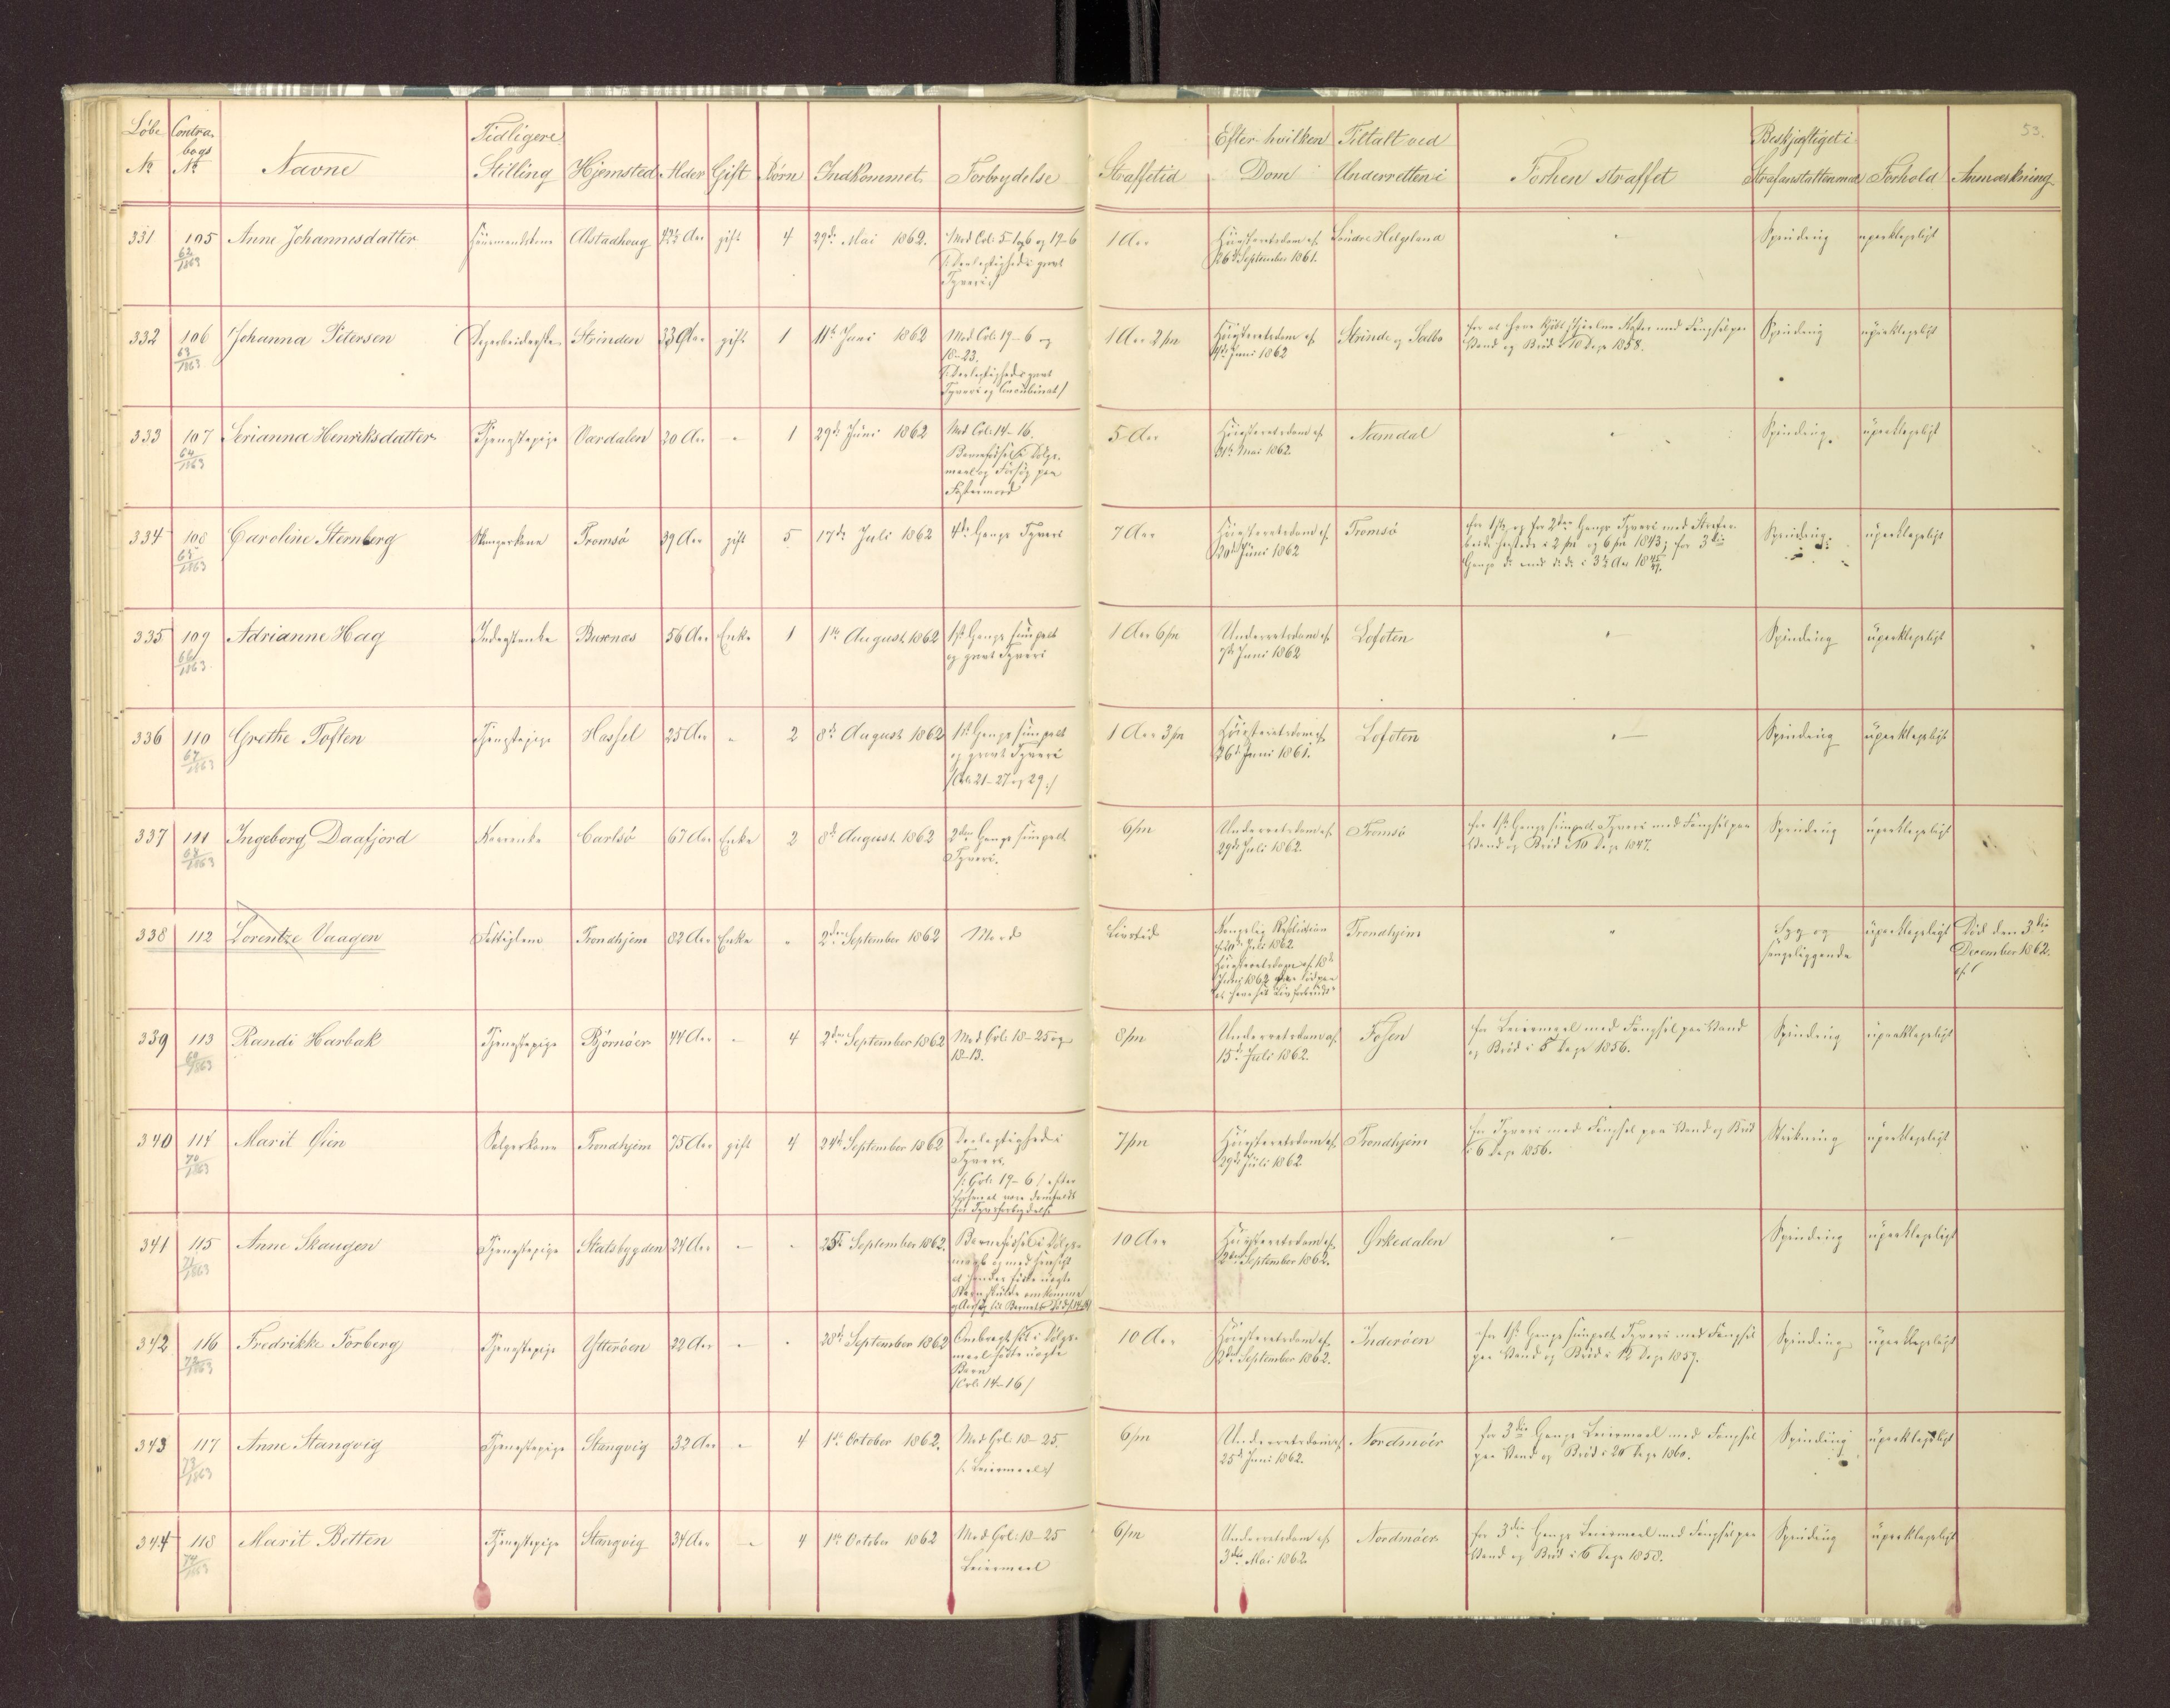 53.
Löbe No Contra bogs No Navne Tidligere Stilling Hjemsted Alder Gift Börn Indkommet Forbrydelse Straffetid Efter hvilken Dom Tiltalt ved Underretten i Forhen straffet Beskjæftiget i Strafanstalten med Forhold Anmærkning
331 105 Anne Johannesdatter Huusmandskone Alstadhoug 42½ Aar gift 4 29de Mai 1862. Mod Crl: 5-1,6 og 19-6 1 Aar Høiesteretsdom af Söndre Helgeland - Spinding upaaklageligt
62/1863 /: Deelagtighed i grovt 26de September 1861.
Tyveri :/
332 106 Johanna Petersen Strinden 33 Aar gift 1 11te Juni 1862 Mod Crl: 19-6 og 1 Aar 2 Mn Høiesteretsdom af Strinde og Selbo for at have kjøbt stjaalne Koster med Fængsel paa Spinding upaaklageligt
63/1863 18-23. Juni 1862 Vand og Brød i 10 Dage 1858.
/: Deelagtighed i grovt
Tyveri og Concubinat /
333 107 Serianna Henriksdatter Tjenestepige Værdalen 30 Aar - 1 29de Juni 1862 Mod Crl: 14-16. 5 Aar Høiesteretsdom af Namdal - Spinding. upaaklageligt
64/1863 Barnefødsel i Dølgs- 31te Mai 1862.
maal og Forsøg paa
Fostermord
334 108 Caroline Sternberg Tromsö 39 Aar gift 5 17de Juli 1862 4de Gangs Tyveri 7 Aar Høiesteretsdom af Tromsö for 1ste og for 2den Gangs Tyveri med Strafar- Spinding. upaaklageligt
65/1863 20de Juni 1862 beide i 2 Mn og 6 Mn 1843; for 3die
Gangs do med do do i 3½ Aar
335 109 Adrianne Hag Inderstenke Buxnæs 56 Aar Enke 1 1ste August 1862 1ste Gangs simpelt 1 Aar 6 Mn Underretsdom af Lofoten - Spinding upaaklageligt
66/1863 og grovt Tyveri 7de Juni 1862
336 110 Grethe Toften Tjenestepige Hassel 25 Aar - 2 8de August 1862 1ste Gangs simpelt 1 Aar 3 Mn Høiesteretsdom af Lofoten - Spinding upaaklageligt
67/1863 og grovt Tyveri 26de Juni 1861.
/Crl: 21-27 og 29 :/
337 111 Ingeborg Daafjord Carlsö 67 Aar Enke 2 8de August 1862 2den Gangs simpelt 6 Mn Underretsdom af Tromsö for 1ste Gangs simpelt Tyveri med Fængsel paa Spinding upaaklageligt
68/1863 Tyveri. 29de Juli 1862. Vand og Brød i 10 Dage 1847.
338 112 Lorentze Vaagen Fattiglem Trondhjem 82 Aar Enke " 2den September 1862 Mord Livstid Kongelig Resolution Trondhjem " Syg og upaaklageligt Död den 3die
af 20de Juli 1862 sengeliggende December 1862.
Høiesteretsdom af 18de
Juni 1862 gik ud paa
at have sit Liv forbrudt
339 113 Randi Harbak Tjenestepige Björnöer 44 Aar - 4 2den September 1862 Mod Crl: 18-25 og 8 Mn Underretsdom af Fosen for Leiermaal med Fængsel paa Vand Spinding upaaklageligt
69/1863 18-13. 15de Juli 1862. og Brød i 5 Dage 1856.
340 114 Marit Øien Trondhjem 75 Aar gift 4 24de September 1862 Deelagtighed i 7 Mn Høiesteretsdom af Trondhjem for Tyveri med Fængsel paa Vand og Brød Strikning upaaklageligt
70/1863 Tyveri. 29de Juli 1862. i 6 Dage 1856.
/: Crl: 19-6 / efter
forhen at være domfældt
for Tyvsforbrydelse
341 115 Anne Skaugen Tjenestepige Statsbygden 24 Aar - - 25de September 1862. Barnefødsel i Dølgs- 10 Aar Høiesteretsdom af Ørkedalen - Spinding upaaklageligt
71/1863 maal og med Hensigt 2den September 1862.
at hendes fødte uægte
Barn skulde omkomme
342 116 Fredrikke Forberg Tjenestepige Ytteröen 22 Aar - - 28de September 1862 Ombragt sit i Dølgs- 10 Aar Høiesteretsdom af Inderöen for 1ste Gangs simpelt Tyveri med Fængsel Spinding upaaklageligt
72/1863 maal fødte uægte 2den September 1862. paa Vand og Brød i 12 Dage 1859.
Barn
/Crl: 14-16/
343 117 Anne Stangvig Tjenestepige Stangvig 32 Aar - 4 1ste October 1862. Mod Crl: 18-25. 6 Mn Underretsdom af Nordmöer for 3die Gangs Leiermaal med Fængsel Spinding upaaklageligt
73/1863 /: Leiermaal :/ 25de Juni 1862. paa Vand og Brød i 20 Dage 1860.
344 118 Marit Botten Tjenestepige Stangvig 34 Aar - 4 1ste October 1862 Mod Crl: 18-25 6 Mn Underretsdom af Nordmöer for 3die Gangs Leiermaal med Fængsel paa Spinding upaaklageligt
74/1863 Leiermaal 3die Mai 1862. Vand og Brød i 6 Dage 1858.